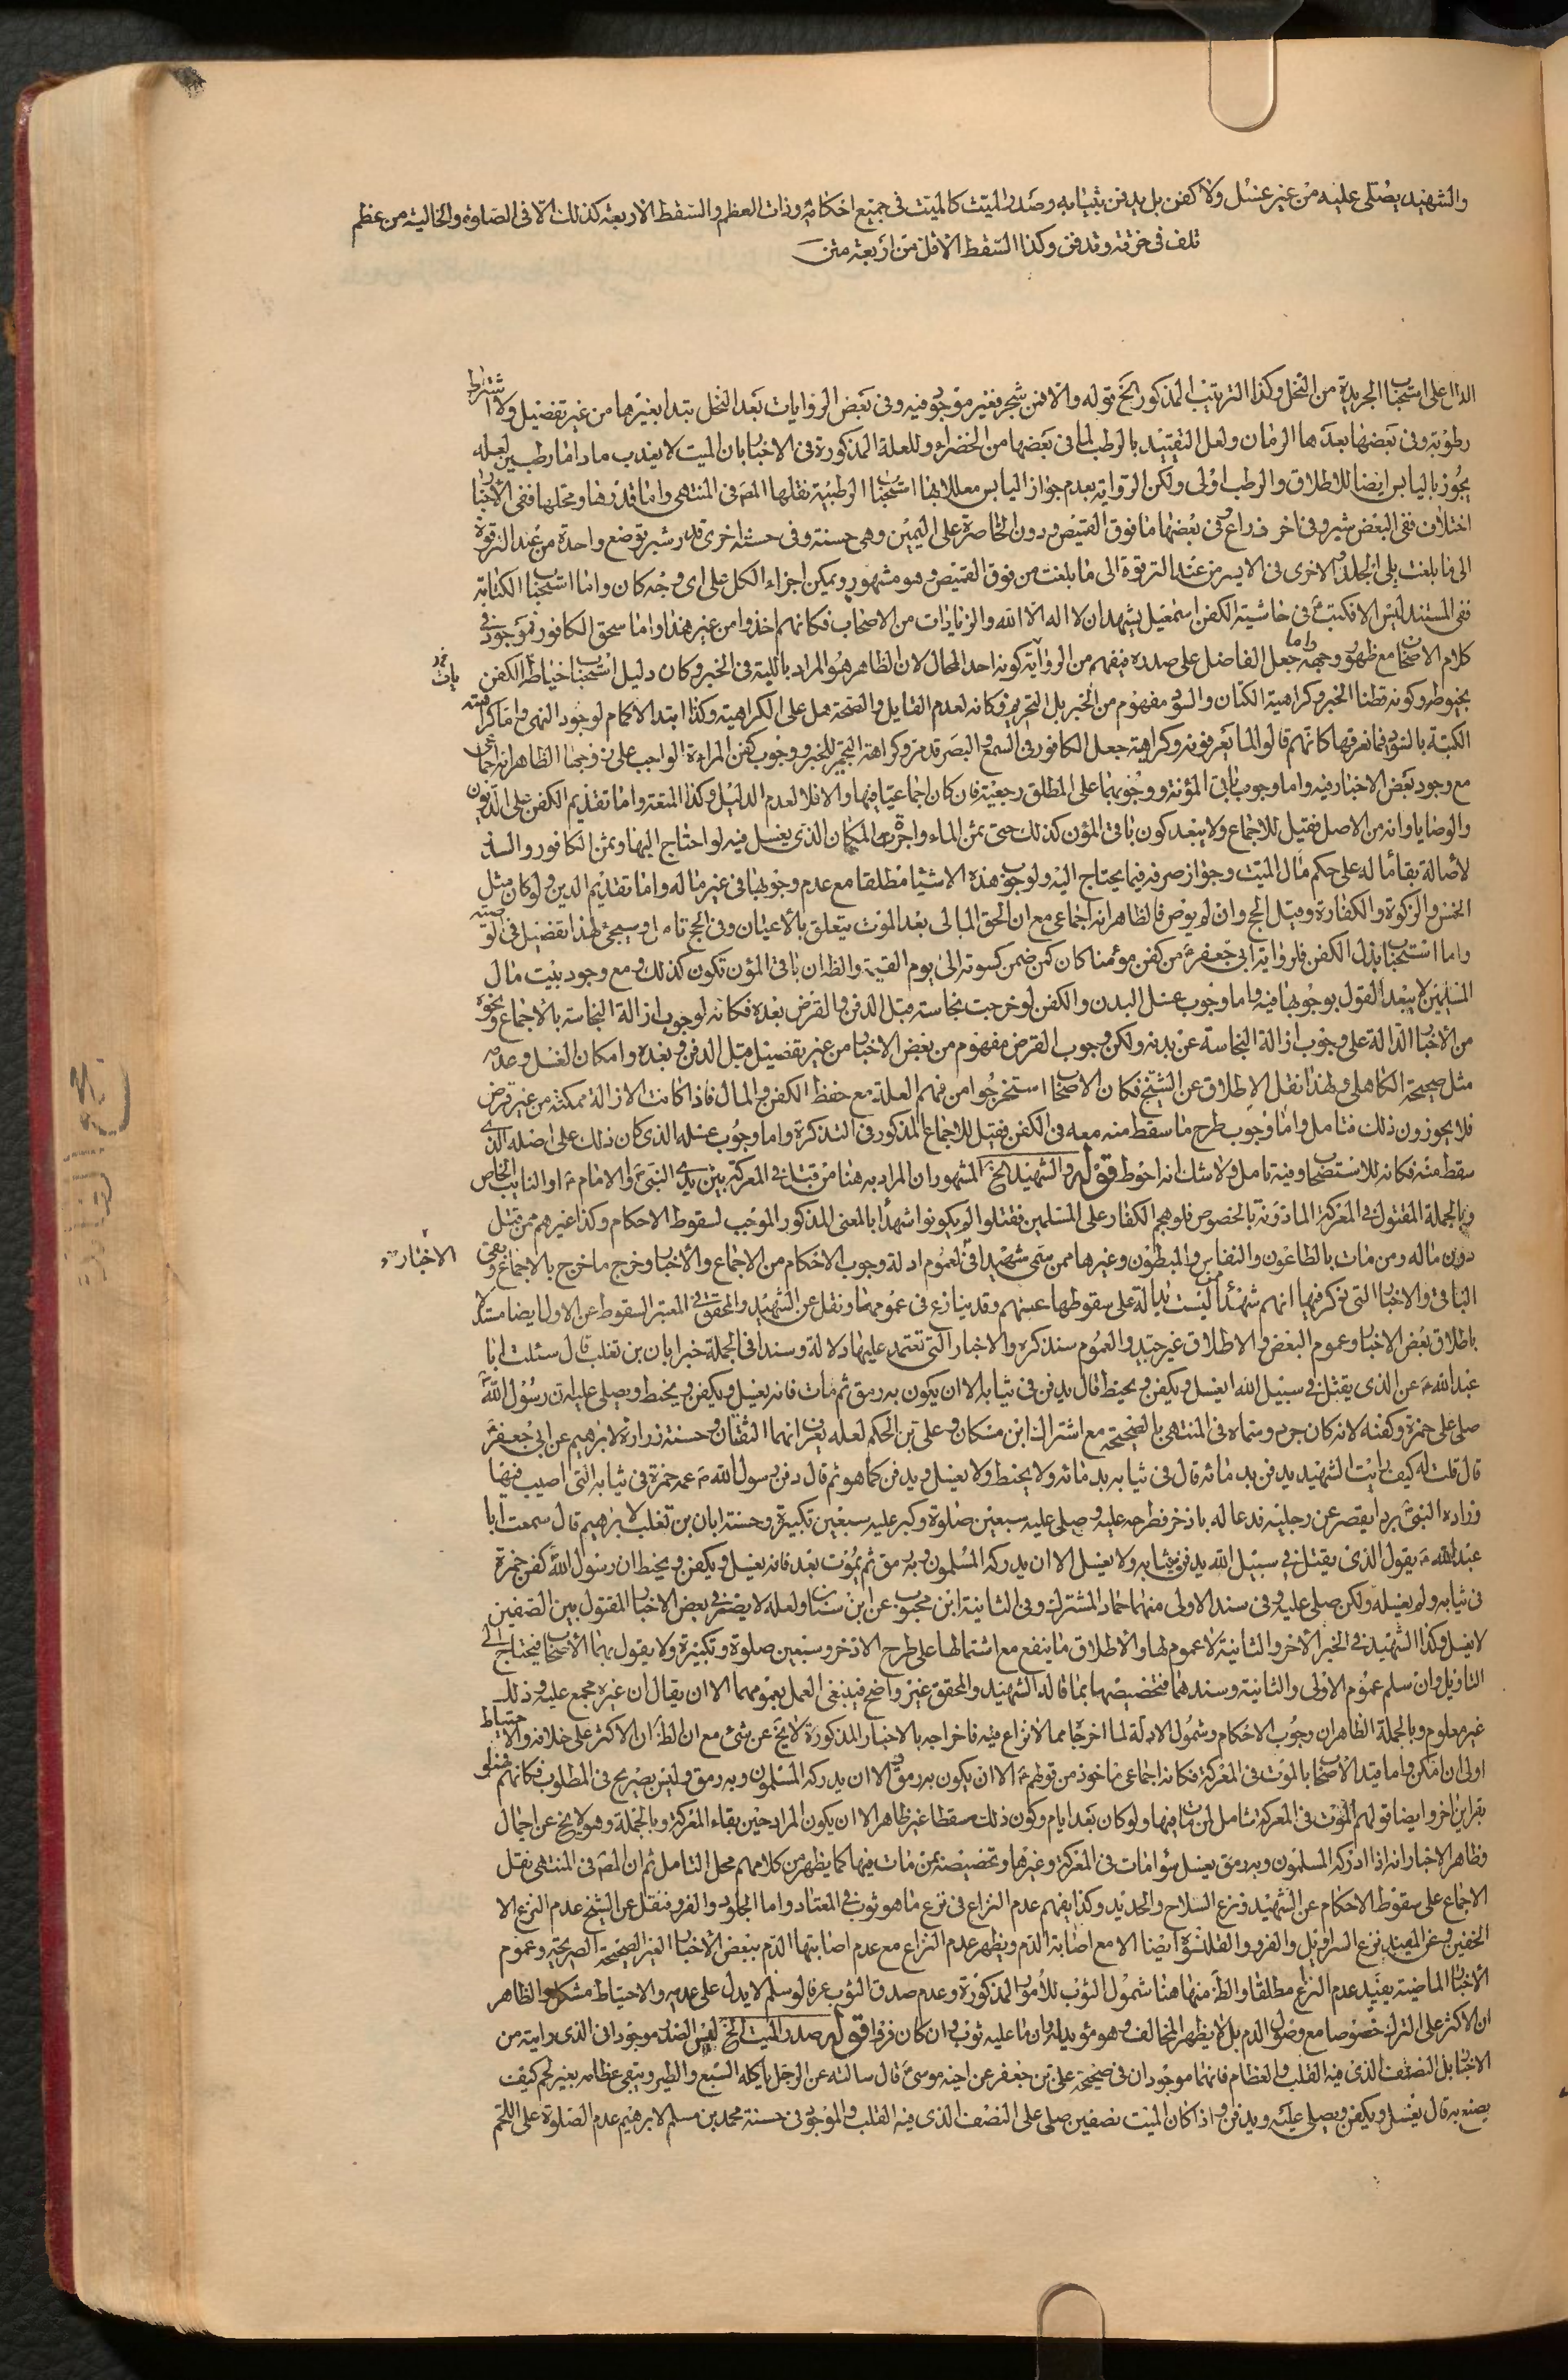 والشهيد يصلى عليه من غير غسل ولا كفن بل يدفن بثيابه وصدر الميت كالميت في جميع احكامه وذات العظم والسقط الاربعة كذلك الا في الصلوة والخالية من عظم
تلف في خرقة وتدفن وكذا السقط الاقل من اربعة متن
الدال على استحباب الجريدة من النخل وكذا الترتيب المذكور الخ قوله والا فمن شجر فغير موجود فيه وفي بعض الروايات بعد النخل تبدا بغيرها من غير تفصيل ولا اشتراط
رطوبة وفي بعضها بعدها الرمان ولعل التقييد بالرطب لما في بعضها من الخضراء وللعلة المذكورة في الاخبار بان الميت لا يعذب ما داما رطبين لعله
يجوز باليابس ايضا للاطلاق والرطب اولى ولكن الرواية بعدم جواز اليابس معللا بها استحباب الرطبية نقلها المص في المنتهى واما قدرها ومحلها ففي الاخبار
اختلاف ففي البعض شبر وفي اخر ذراع وفي بعضها ما فوق القميص ودون الخاصرة على اليمين وهي حسنة وفي حسنة اخرى قدر شبر توضع واحدة من عند الترقوة
الى ما بلغت يلى الجلد والاخرى في الايسر من عند الترقوة الى ما بلغت من فوق القميص وهو مشهور ويمكن اجزاء الكل على اي وجه كان واما استحباب الكتابة
ففي المستند ليس الا فكتب في حاشية الكفن اسمعيل يشهد ان لا اله الا الله والزيادات من الاصحاب فكانهم اخذوا من غير هذا واما سحق الكافور فموجود في
كلام الاصحاب مع ظهور وجهه واما جعل الفاضل على صدره فيفهم من الرواية كونه احد المحال لان الظاهر هو المراد باللبة في الخبر وكان دليل استحباب خياطة الكفن
بخيوطه وكونه قطنا الخبر وكراهية الكتان والسواد مفهوم من الخبر بل التحريم فكانه لعدم القايل والصحة حمل على الكراهية وكذا ابتداء الاكمام لوجود النهي واما كراهية
الكتبة بالسواد فما نعرفها كانهم قالوا لما يعرفونه وكراهية جعل الكافور في السمع والبصر قد مر وكراهة التجمير للخبر ووجوب كفن المراءة الواجب على زوجها الظاهر انه اجماعي
مع وجود بعض الاخبار فيه واما وجوب باقي المؤنة ووجوبهما على المطلق رجعية فان كان اجماعيا فيها والا فلا لعدم الدليل وكذا المتعة واما تقديم الكفن على الديون
والوصايا وانه من الاصل فقيل للاجماع ولا يبعد كون باقي المؤن كذلك حتى ثمن الماء واجرة المكان الذي يغسل فيه لو احتاج اليها وثمن الكافور والسدر
لأصالة بقاء ماله على حكم مال الميت وجواز صرفه فيما يحتاج اليه ولوجوب هذه الاشياء مطلقا مع عدم وجوبها في غير ماله واما تقديم الدين ولو كان مثل
الخمس والزكوة والكفارة ومثل الحج وان لم يوص فالظاهر انه اجماعي مع ان الحق المالي بعد الموت يتعلق بالاعيان وفي الحج تامل وسيجئ لهذا تفصيل في الوصية
واما استحباب بذل الكفن فلرواية ابي جعفر من كفن مؤمنا كان كمن ضمن كسوته الى يوم القيمة والظ ان باقي المؤن تكون كذلك ومع وجود بيت مال
المسلمين لا يبعد القول بوجوبها فيه واما وجوب غسل البدن والكفن لو خرجت نجاسة قبل الدفن والقرض بعده فكانه لوجوب ازالة النجاسة بالاجماع ونحوه
من الاخبار الدالة على وجوب ازالة النجاسة عن بدنه ولكن وجوب القرض مفهوم من بعض الاخبار من غير تفصيل قبل الدفن وبعده وامكان الغسل وعدمه
مثل صحيحة الكاهلي ولهذا نقل الاطلاق عن الشيخ فكان الاصحاب استخرجوا من فهم العلة مع حفظ الكفن والمال فاذا كانت الازالة ممكنة من غير قرض
فلا يجوزون ذلك فتامل واما وجوب طرح ما سقط منه معه في الكفن فقيل للاجماع المذكور في التذكرة واما وجوب غسله الذي كان ذلك على اصله الذي
سقط منه فكانه للاستصحاب وفيه تامل ولا شك انه احوط قوله والشهيد الخ المشهور ان المراد به هنا من قتل في المعركة بين يدي النبي والامام ع او النايب الخاص
وبالجملة المقتول في المعركة الماذونة بالخصوص فلو هجم الكفار على المسلمين فقتلوا لم يكونوا شهدا بالمعنى المذكور الموجب لسقوط الاحكام وكذا غيرهم ممن قتل
دون ماله ومن مات بالطاعون والنفاس والمبطون وغيرها ممن سمي شهيدا في الاخبار لعموم ادلة وجوب الاحكام من الاجماع والاخبار وخرج ما خرج بالاجماع وبقي
الباقي والاخبار التي ذكر فيها انهم شهدا ليست بدالة على سقوطها عنهم وقد ينازع في عمومها ونقل عن الشهيد والمحقق في المعتبر السقوط عن الاول ايضا مستدلا
باطلاق بعض الاخبار وعموم البعض والاطلاق غير جيد والعموم سنذكره والاخبار التي تعتمد عليها دلالة وسندا في الجملة خبر ابان بن تغلب قال سئلت ابا
عبد الله ع عن الذي يقتل في سبيل الله ايغسل ويكفن ويحنط قال يدفن في ثيابه الا ان يكون به رمق ثم مات فانه يغسل ويكفن ويحنط ويصلى عليه ان رسول الله
صلى على حمزة وكفنه لانه كان جرد وسماه في المنتهى بالصحيحة مع اشتراك ابن مسكان وعلى بن الحكم لعله يعرف انهما الثقتان وحسنة زرارة لابرهيم عن ابي جعفر
قال قلت له كيف رايت الشهيد يدفن بدمائه قال في ثيابه بدمائه ولا يحنط ولا يغسل ويدفن كما هو ثم قال دفن رسول الله ص عمه حمزة في ثيابه التي اصيب فيها
وزاده النبي بردا يقصر عن رجليه فدعا له باذخر فطرحه عليه وصلى عليه سبعين صلوة وكبر عليه سبعين تكبيرة وحسنة ابان بن تغلب لابرهيم قال سمعت ابا
عبد الله ع يقول الذي يقتل في سبيل الله يدفن في ثيابه ولا يغسل الا ان يدركه المسلمون وبه رمق ثم يموت بعد فانه يغسل ويكفن ويحنط ان رسول الله كفن حمزة
في ثيابه ولم يغسله ولكن صلى عليه وفي سند الاولى منهما حماد المشترك وفي الثانية ابن محبوب عن ابن سنان ولعله لا يضر في بعض الاخبار المقتول بين الصفين
لا يغسل وكذا الشهيد في الخبر الآخر والثانية لا عموم لها والاطلاق ما ينفع مع اشتمالها على طرح الاذخر وسبعين صلوة وتكبيرة ولا يقول بهما الاصحاب فيحتاج الى
التاويل وان سلم عموم الاولى والثانية وسندهما فتخصيصها بما قاله الشهيد والمحقق غير واضح فينبغي العمل بعمومهما الا ان يقال ان غيره مجمع عليه وذلك
غير معلوم وبالجملة الظاهر ان وجوب الاحكام وشمول الادلة لما اخرجا مما لا نزاع فيه فاخراجه بالاخبار المذكورة لا يخ عن شئ مع ان الظ ان الاكثر على خلافه والاحتياط
اولى ان امكن واما قيد الاصحاب بالموت في المعركة فكانه اجماعي ماخوذ من قولهم ع الا ان يكون به رمق والا ان يدركه المسلمون وبه رمق وليس بصريح في المطلوب فكانهم
بقراين اخر وايضا قولهم الموت في المعركة شامل لمن مات فيها ولو كان بعد ايام وكون ذلك مسقطا غير ظاهر الا ان يكون المراد حين بقاء المعركة وبالجملة وهو لا يخ عن اجمال
وظاهر الاخبار انه اذا ادركه المسلمون وبه رمق يغسل سواء مات في المعركة وغيرها وتخصيصه بمن مات فيها كما يظهر من كلامهم محل التامل ثم ان المص في المنتهى نقل
الاجماع على سقوط الاحكام عن الشهيد ونزع السلاح والحديد وكذا يفهم عدم النزاع في نزع ما هو ثوب في المعتاد واما الجلود والفرو فنقل عن الشيخ عدم النزع الا
الخفين وعن المفيد نزع السراويل والفرو والقلنسوة ايضا الا مع اصابة الدم ويظهر عدم النزاع مع عدم اصابتها الدم ببعض الاخبار الغير الصحيحة الصريحة وعموم
الاخبار الماضية يفيد عدم النزع مطلقا والظ منها هنا شمول الثوب للامور المذكورة وعدم صدق الثوب عرفا لو سلم لا يدل على عدمه والاحتياط مشكل والظاهر
ان الاكثر على الترك خصوصا مع وصول الدم بل لا يظهر المخالف وهو مؤيد له وان ما عليه ثوب وان كان فرفا قوله وصدر الميت الخ ليس الصدر موجودا في الذي رايته من
الاخبار بل النصف الذي فيه القلب والعظام فانهما موجودان في صحيحة على بن جعفر عن اخيه موسى ع قال سالته عن الرجل ياكله السبع والطير وتبقى عظامه بغير لحم كيف
يصنع به قال يغسل ويكفن ويصلى عليه ويدفن واذا كان الميت نصفين صلى على النصف الذي فيه القلب والموجود في حسنة محمد بن مسلم لابرهيم عدم الصلوة على اللحم